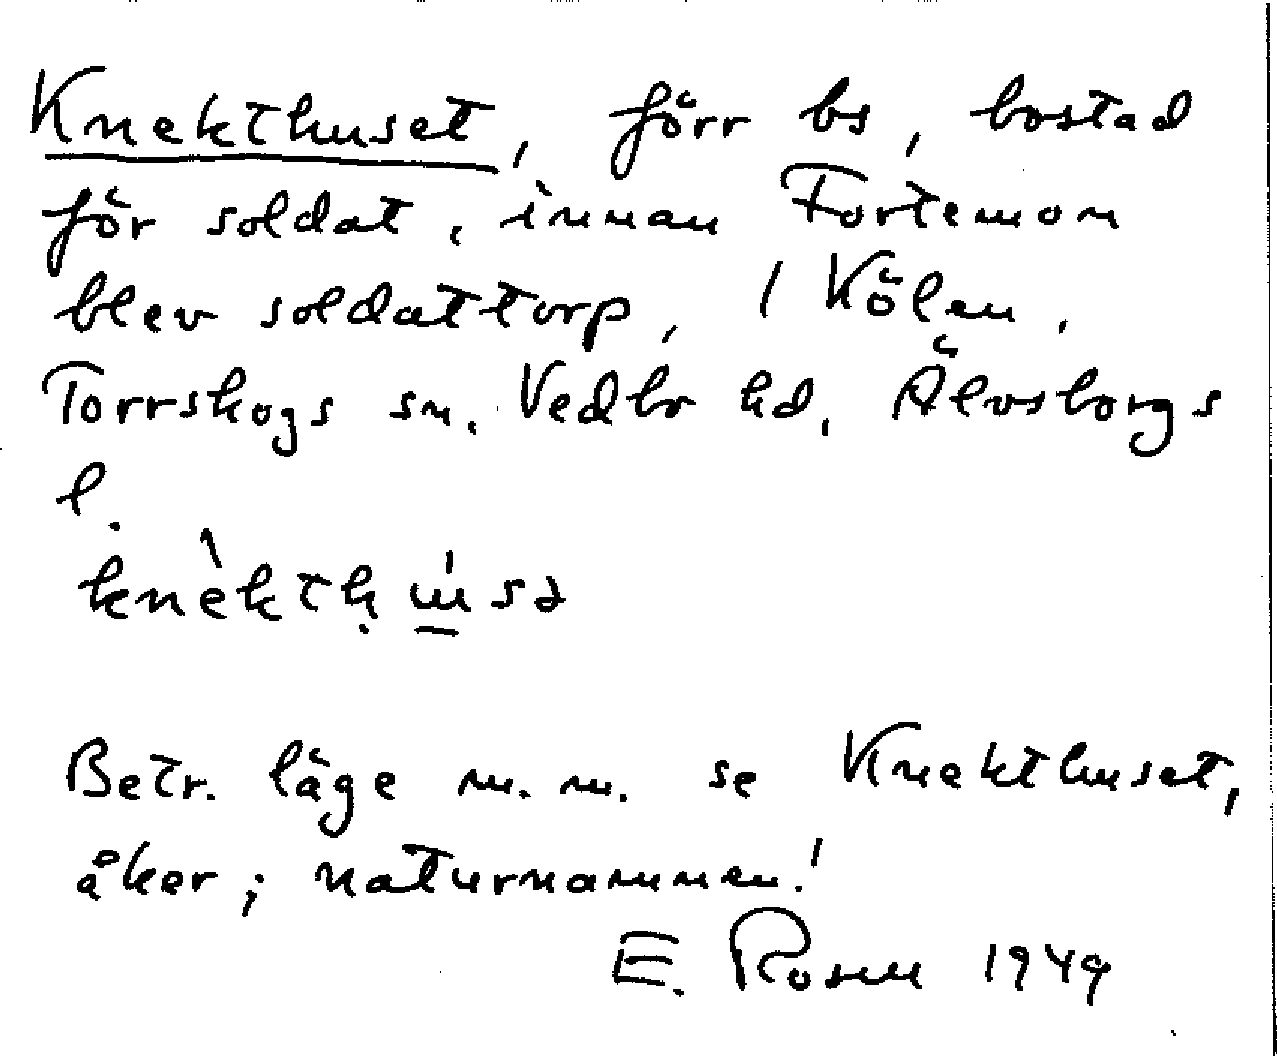 Knekthuset, förr bs, bostad
för soldat, innan Fortemon
blev soldattorp, / Kölen,
Torrskogs sn. Vedbo hd, Älvsborgs
l.
knèktḥu̲̍sə
Betr. läge m. m. se Knekthuset,
åker; naturnamnen!
E. Rosell 1949